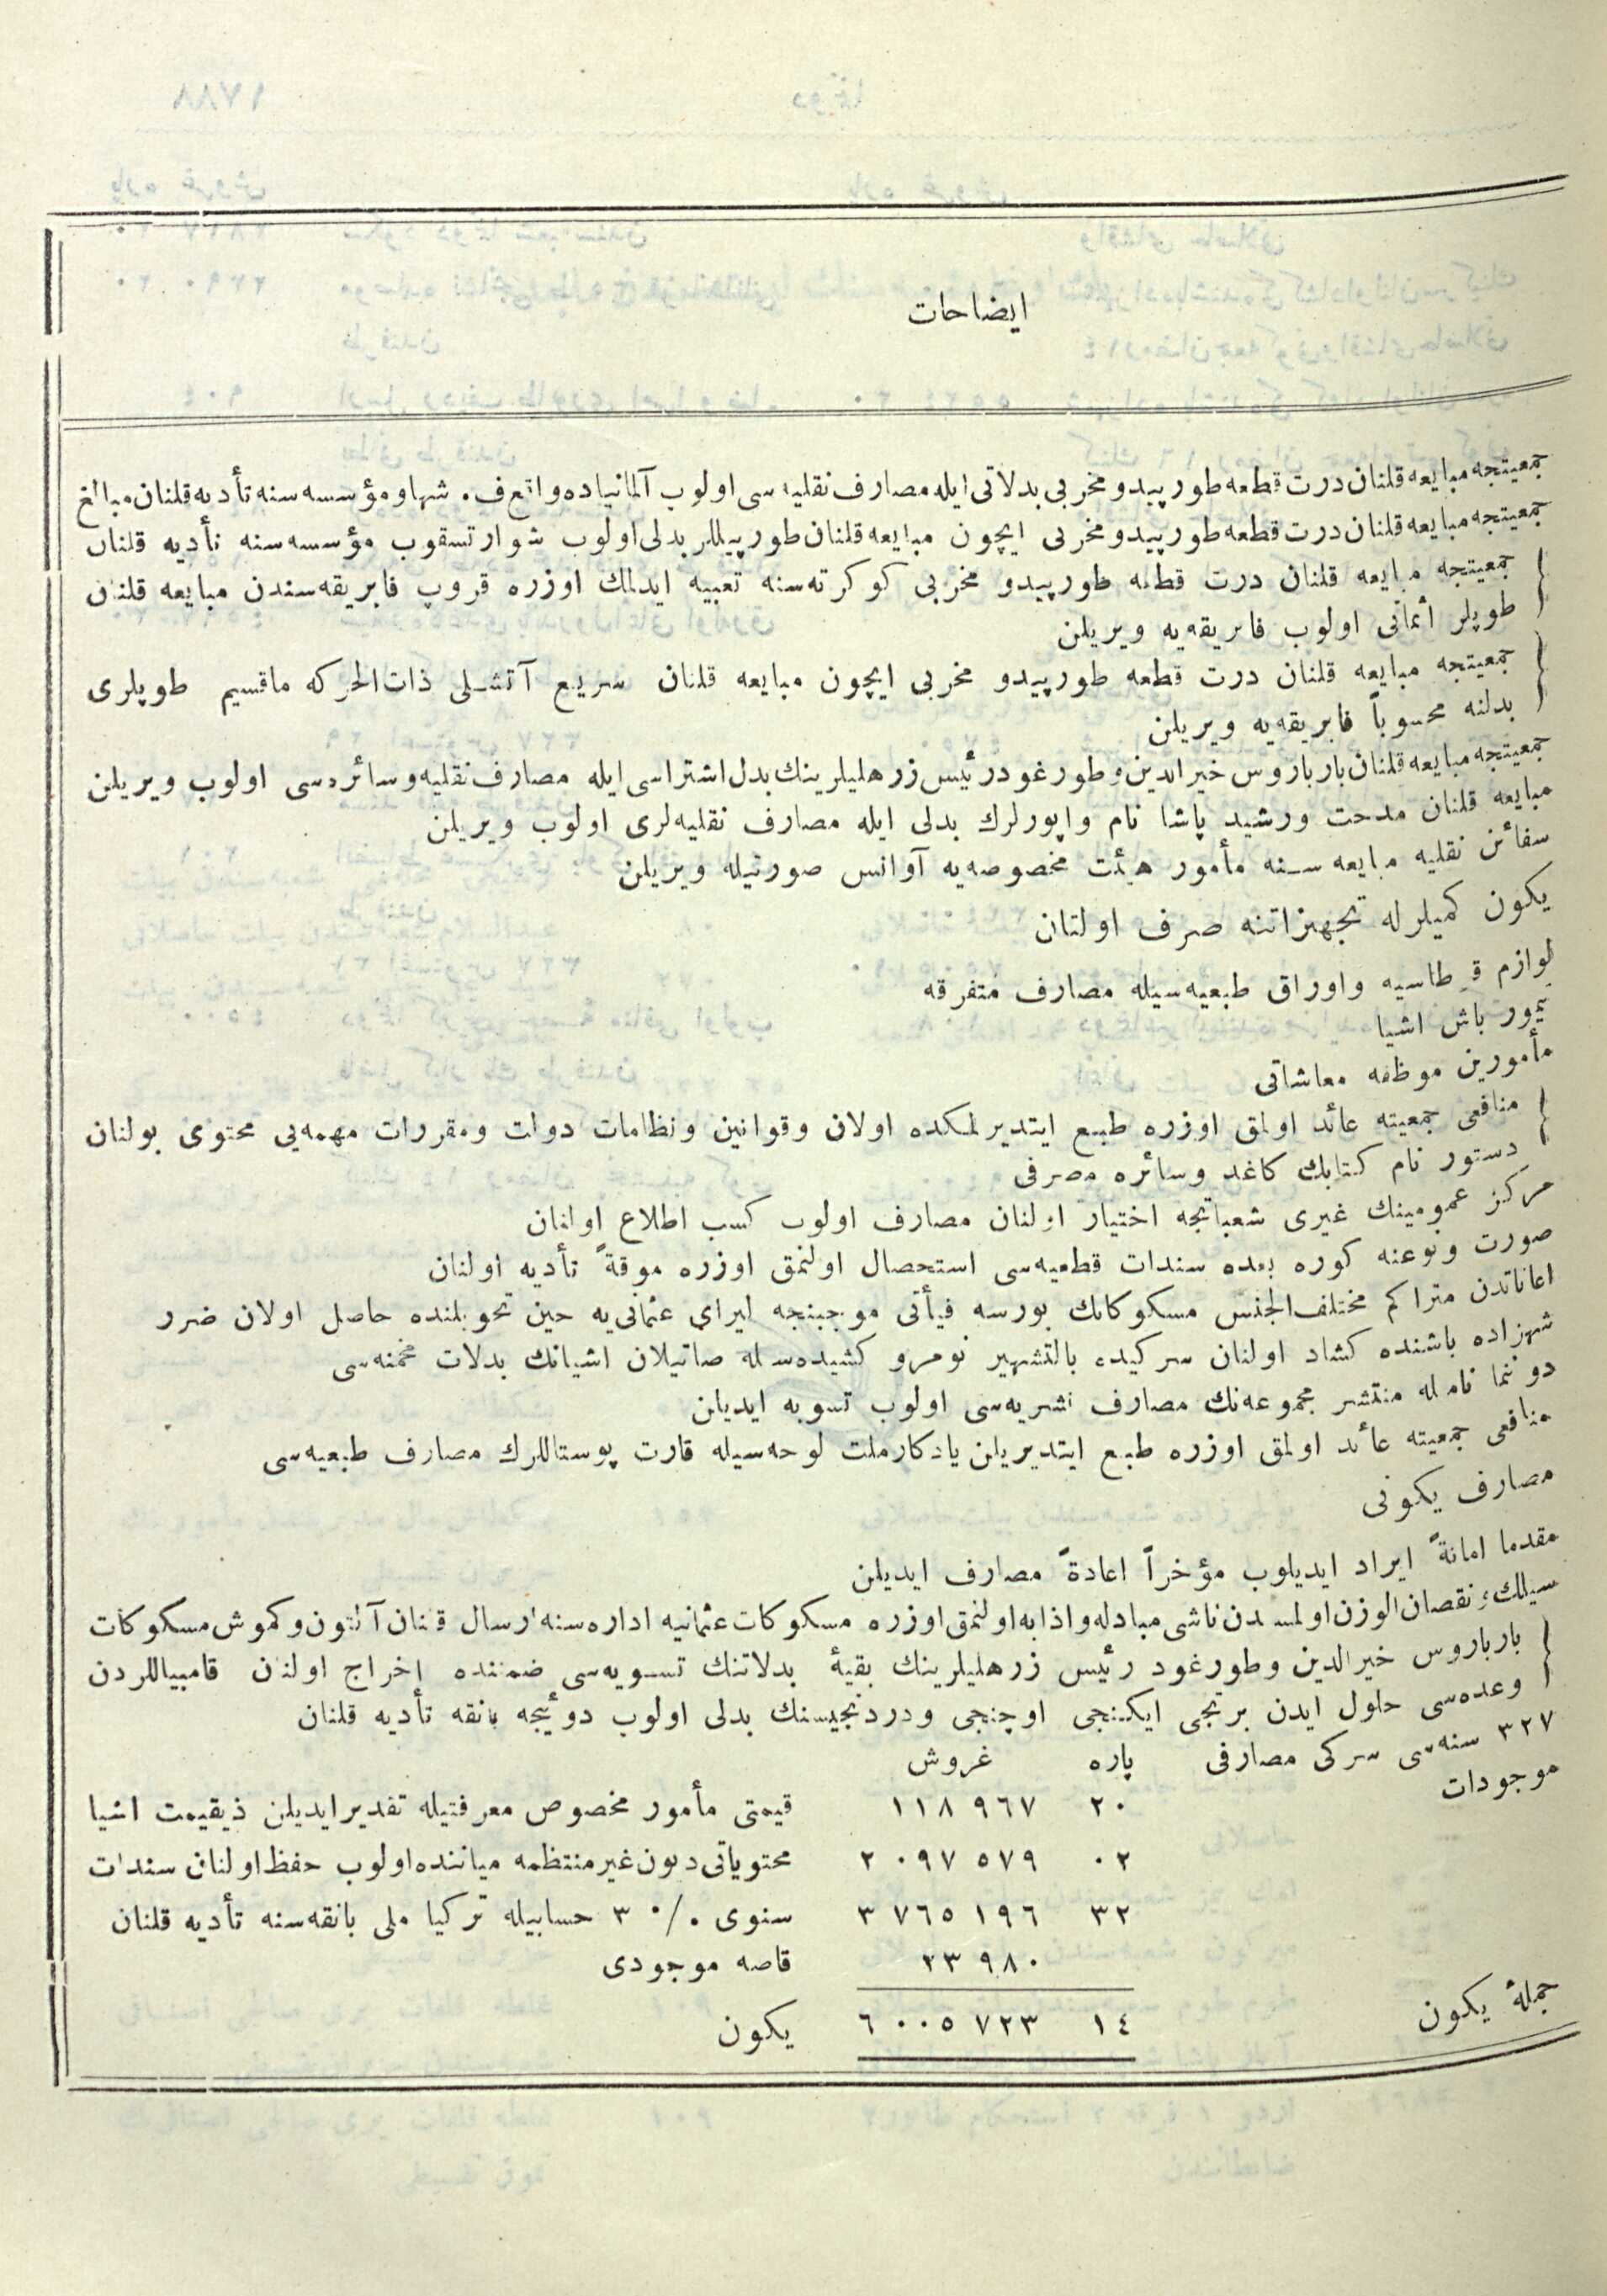 ايضاحات
جمعيتجه مبايعه قلنان درت قطعه طورپيدو مخربى بدلاتى ايله مصارف نقليه سى اولوب آلمانياده واقع ف. شهاو مؤسسه سنه تأديه قلنان مبالغ
جمعيتجه مبايعه قلنان درت قطعه طورپيدو مخربى ايچون مبايعه قلنان طورپيللر بدلى اولوب شوارتسقوب مؤسسه سنه تأديه قلنان
جمعيتجه مبايعه قلنان درت قطعه طورپيدو مخربى كوكرته سنه تعبيه ايدلمك اوزره قروپ فابريقه سندن مبايعه قلنان
طوپلر أثمانى اولوب فابريقه يه ويريلن
جمعيتجه مبايعه قلنان درت قطعه طورپيدو مخربى ايچون مبايعه قلنان سريع آتشلى ذات الحركه ماقسيم طوپلرى
بدلنه محسوباً فابريقه يه ويريلن
جمعيتجه مبايعه قلنان بارباروس خيرالدين و طورغود رئيس زرهليلرينك بدل اشتراسى ايله مصارف نقليه و سائره سى اولوب ويريلن
مبايعه قلنان مدحت ورشيد پاشا نام واپورلرك بدلى ايله مصارف نقليه لرى اولوب ويريلن
سفائن نقليه مبايعه سنه مأمور هيئت مخصوصه يه آوانس صورتيله ويريلن
يكون كميلرله تجهيزاتنه صرف اولنان
لوازم قرطاسيه واوراق طبعيه سيله مصارف متفرقه
تيمور باش اشيا
مأمورين موظفه معاشاتى
منافعى جمعيته عائد اولمق اوزره طبع ايتديرلمكده اولان وقوانين ونظامات دولت ومقررات مهمه يى محتوى بولنان
دستور نام كتابك كاغد وسائره مصرفى
مركز عمومينك غيرى شعباتجه اختيار اولنان مصارف اولوب كسب اطلاع اولنان
صورت ونوعنه كوره بعده سندات قطعيه سى استحصال اولنمق اوزره موقةً تأديه اولنان
اعاناتدن متراكم مختلف الجنس مسكوكاتك بورسه فيأتى موجبنجه ليراى عثمانى يه حين تحويلنده حاصل اولان ضرر
شهزاده باشنده كشاد اولنان سركيده بالتشهير نومرو كشيده سله صاتيلان اشيانك بدلات مخمنه سى
دوننما ناميله منتشر مجموعه نك مصارف نشريه سى اولوب تسويه ايديلن
منافعى جمعيته عائد اولمق اوزره طبع ايتديريلن يادكار ملت لوحه سيله قارت پوستاللرك مصارف طبعيه سى
مصارف يكونى
مقدما امانةً ايراد ايديلوب مؤخراً اعادةً مصارف ايديلن
سيلك و نقصان الوزن اولمسندن ناشى مبادله واذابه اولنمق اوزره مسكوكات عثمانيه اداره سنه ارسال قلنان آلتون وكموش مسكوكات
بارباروس خيرالدين وطورغود رئيس زرهليلرينك بقيۀ بدلاتنك تسويه سى ضمننده اخراج اولنان قامبياللردن
وعده سى حلول ايدن برنجى ايكنجى اوچنجى ودردنجيسنك بدلى اولوب دوئيچه بانقه تأديه قلنان
٣٢٧ سنه سى سركى مصارفى پاره غروش
موجودات
٢٠ ١١٨ ٩٦٧ قيمتى مأمور مخصوص معرفتيله تقدير ايديلن ذيقيمت اشيا
٠٢ ٢ ٠٩٧ ٥٧٩ محتوياتى ديون غير منتظمه مياننده اولوب حفظ اولنان سندات
٣٢ ٣ ٧٦٥ ١٩٦ سنوى ٠/٠ ٣ حسابيله تركيا ملى بانقه سنه تأديه قلنان
٢٣ ٩٨٠ قاصه موجودى
جملۀ يكون ١٤ ٦ ٠٠٥ ٧٢٣ يكون